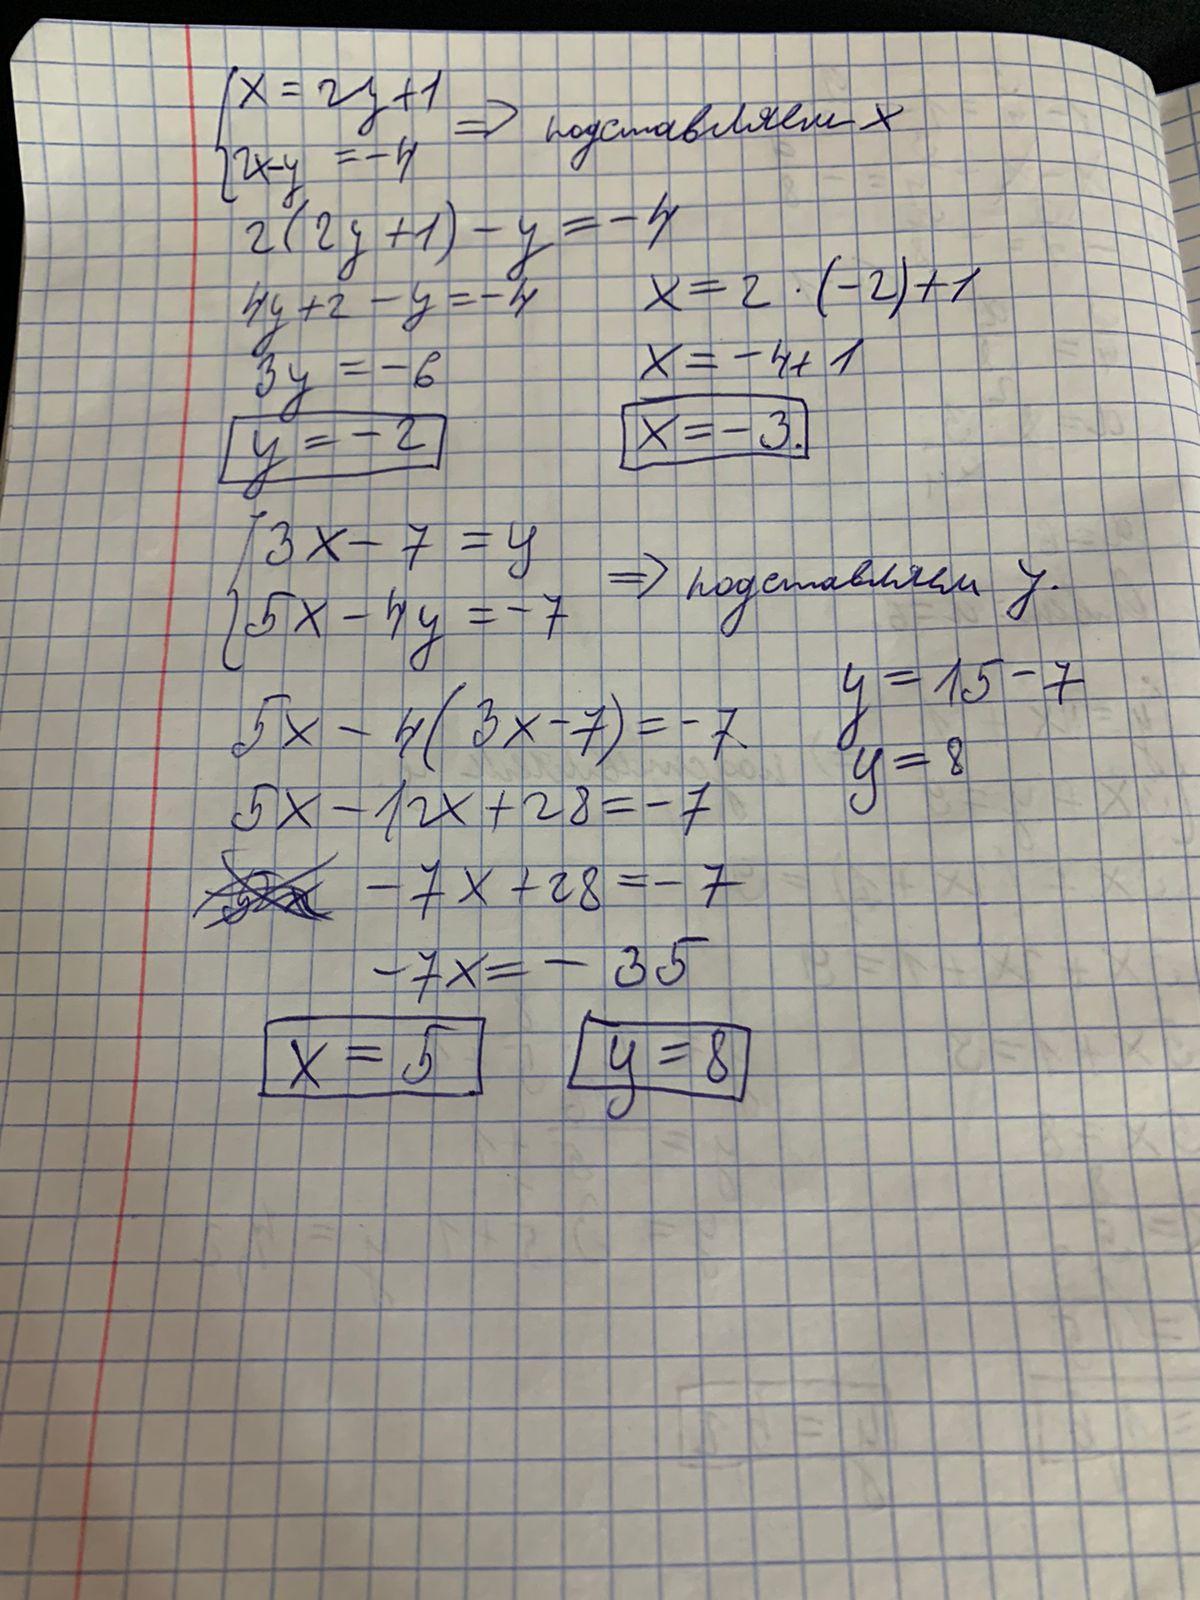 x = 2y+1
2x-y = -4
=> подставляем x
2(2y+1) - y = -4
4y+2 - y = -4
3y = -6
y = -2
x = 2 · (-2)+1
x = -4+1
x = -3.
3x - 7 = y
5x - 4y = -7
=> подставляем y.
5x - 4(3x-7) = -7
5x - 12x + 28 = -7
-7x + 28 = -7
-7x = - 35
y = 15 - 7
y = 8
x = 5 y = 8